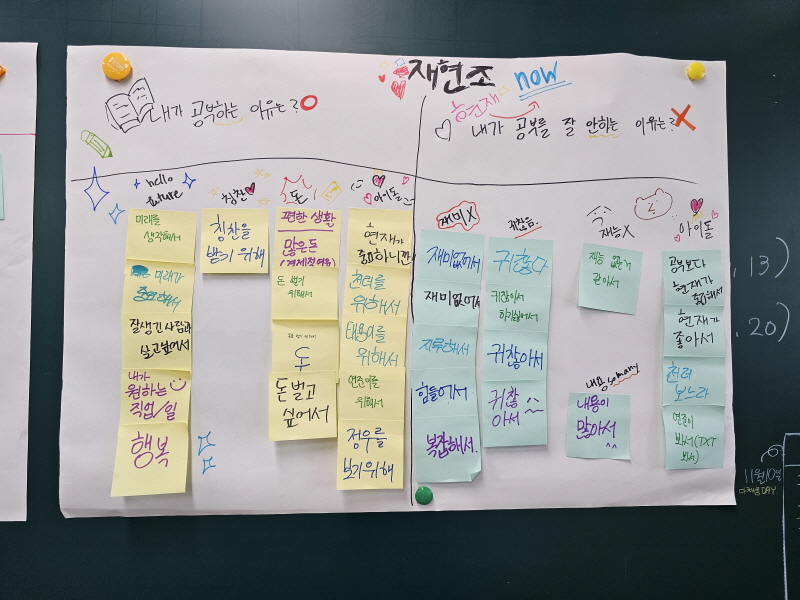 재현조
now
내가 공부하는 이유는?
현재
내가 공부를 잘 안하는 이유는?
hello
future
미래를
생각해서
미래가
중요해서
잘생긴 사람과
살고싶어서
내가
원하는
직업/일
행복
칭찬
칭찬을
받기 위해
돈
편한 생활
많은돈
(경제적여유)
돈 벌기
위해서
돈
돈 벌고
싶어서
아이돌
현재가
중요하니깐
천러를
위해서
태용이를
위해서
연준이를
위해서
정우를
보기위해
재미X
재미없어서
재미없어서
지루해서
힘들어서
복잡해서.
귀찮음.
귀찮다
귀찮아서
하기싫어서
귀찮아서
귀찮
아서
재능X
재능 없는거
같아서
내용 so many
내용이
많아서
아이돌
공부보다
현재가
중요해서
현재가
좋아서
천러
보느라
연준이
봐서(TXT
봐서)
, 13)
, 20)
11월10일
DAY